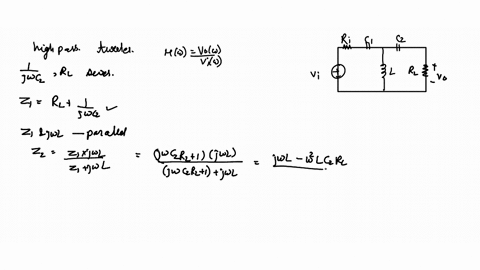 high pass tweeter.
H(ω) = Vo(ω) / Vi(ω)
1 / jωC2 , RL series.
Z1 = RL + 1 / jωC2 ✓
Z1 & jωL — parallel
Z2 = Z1 × jωL / Z1 + jωL = (jωC2RL+1) (jωL) / (jωC2RL+1) + jωL = jωL − ω²LC2RL
Ri C1 C2
Vi L RL + Vo -